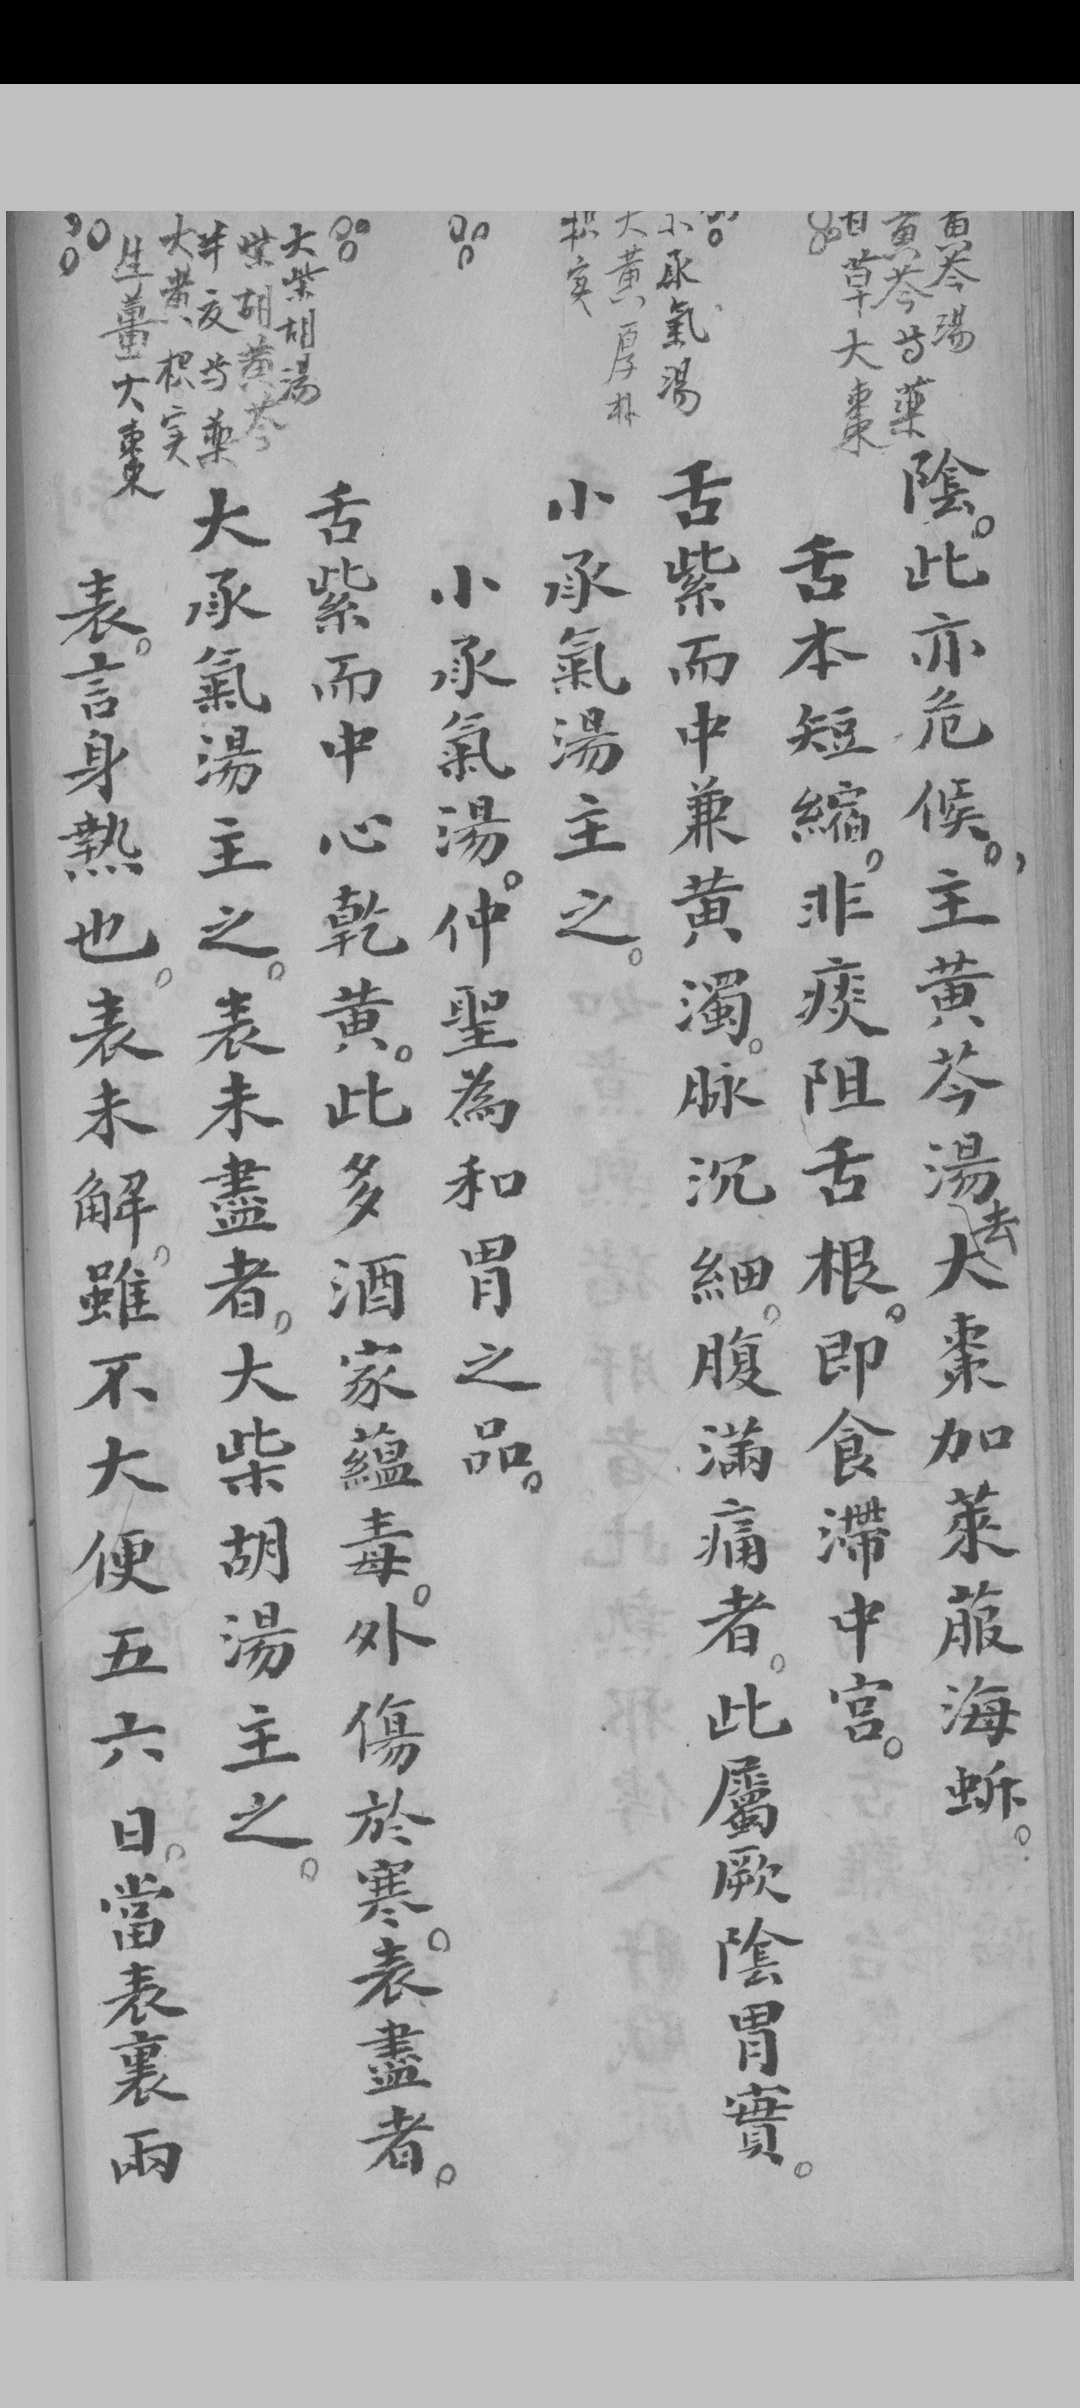 黃芩湯
黃芩芍藥
甘草大棗
陰。此亦危候。主黄芩湯去大棗加萊菔海蚷。
舌本短縮，非痰阻舌根。即食滯中宮。
小承氣湯
大黃厚朴
枳実
舌紫而中兼黄濁。脉沉細。腹滿痛者。此屬厥陰胃實。
小承氣湯主之。
小承氣湯。仲聖為和胃之品。
大柴胡湯
柴胡黃芩
半夏芍藥
大黃枳実
生薑大棗
舌紫而中心乾黄。此多酒家蘊毒。外傷於寒。表盡者。
大承氣湯主之。表未盡者。大柴胡湯主之。
表。言身熱也。表未解。雖不大便五六日。當表裏兩